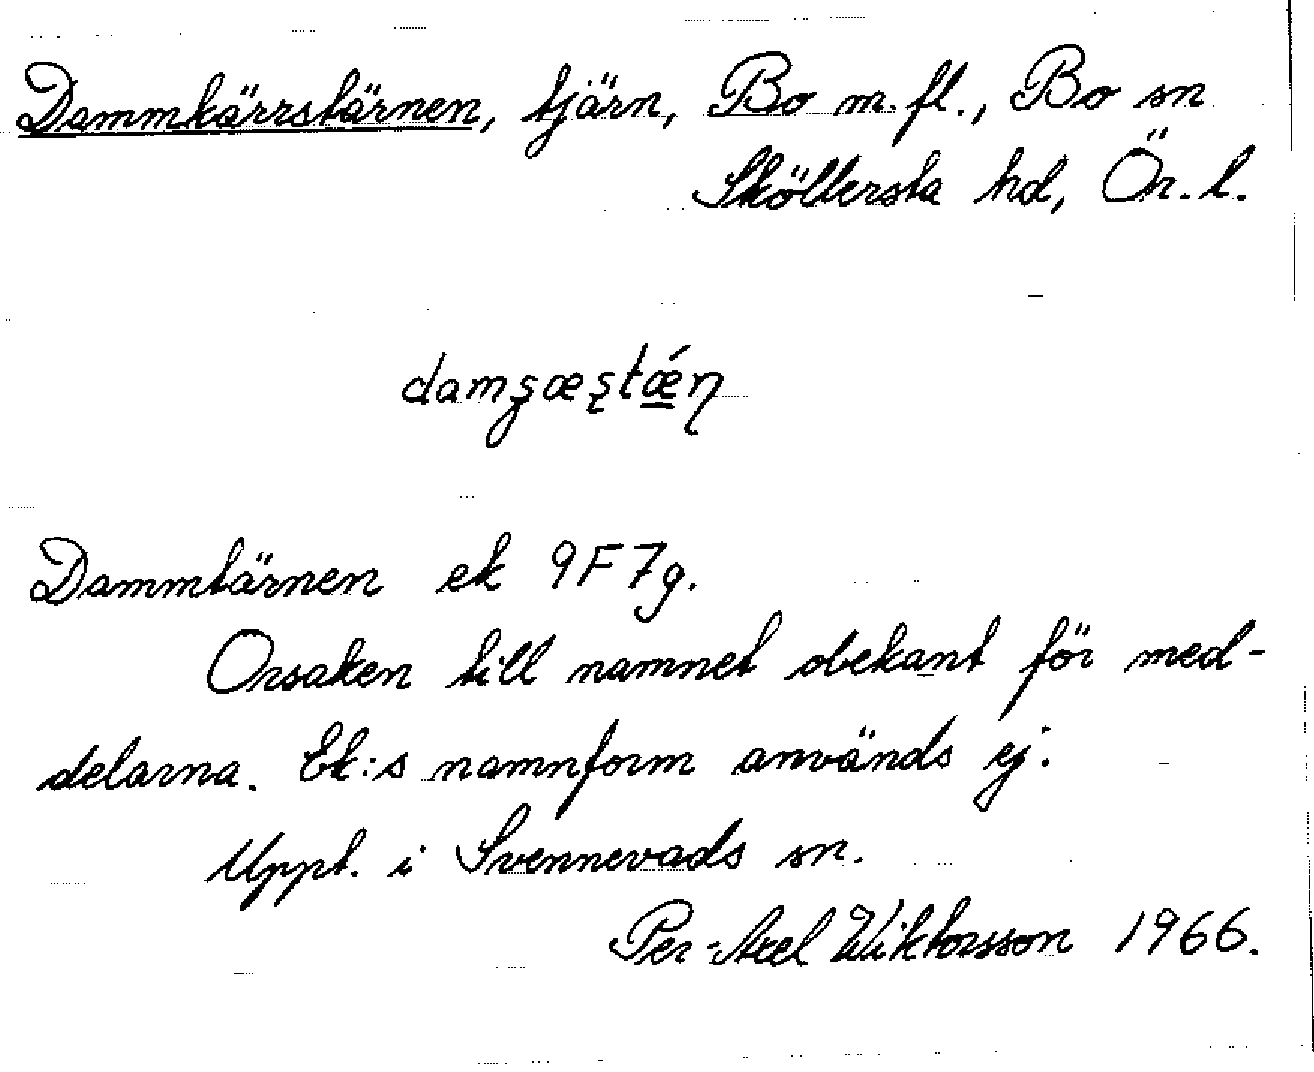 Dammkärrstärnen, tjärn, Bo m.fl., Bo sn
Sköllersta hd, Ör. l.
Dammtärnen ek 9F7g.
Orsaken till namnet obekant för med-
delarna. Ek:s namnform används ej.
Uppt. i Svennevads sn.
Per-Axel Wiktorsson 1966.